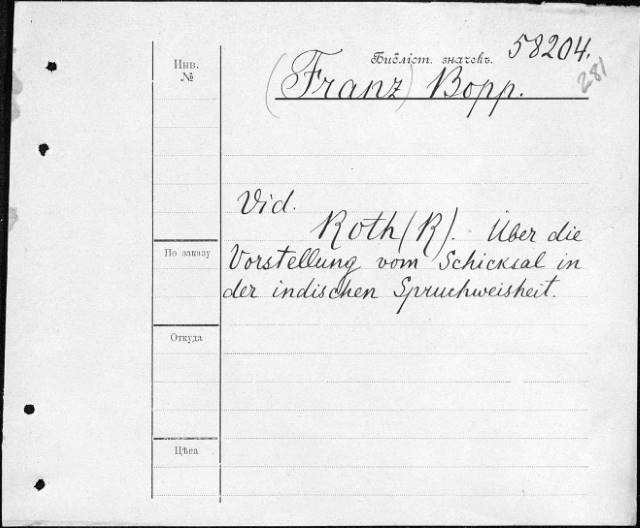 Инв.
№
Библіот. значекъ. 58204.
281
(Franz) Bopp.
Vid.
Roth (R). Über die
По заказу
Vorstellung vom Schicksal in
der indischen Spruchweisheit.
Откуда
Цѣна